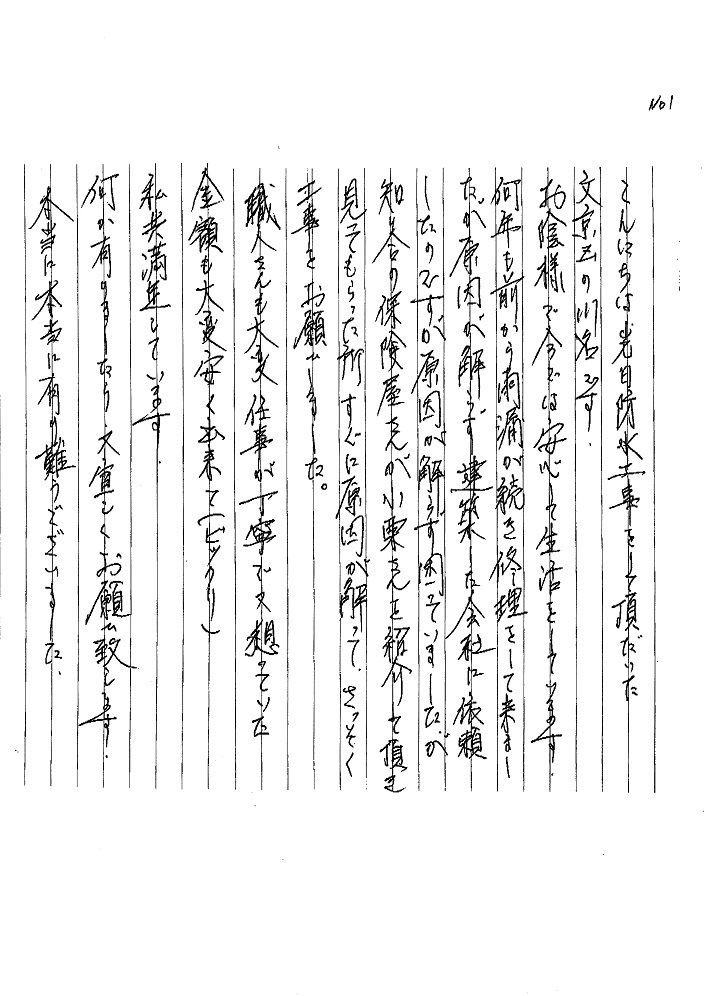 No1
こんにちは先日防水工事をして頂だいた
文京区の川名です.
お陰様で今では安心して生活をしています.
何年も前から雨漏が続き修理をして来まし
たが原因が解らず建築した会社に依頼
したのですが原因が解らず困っていましたが
知り合の保険屋さんが小栗さんを紹介して頂き
見てもらった所すぐに原因が解って、さっそく
工事をお願いしました。
職人さんも大変仕事が丁寧で又想っていた
金額も大変安く出来て(ビックリ)
私共満足しています.
何か有りましたら又宜しくお願い致します.
本当に本当に有り難うございました.